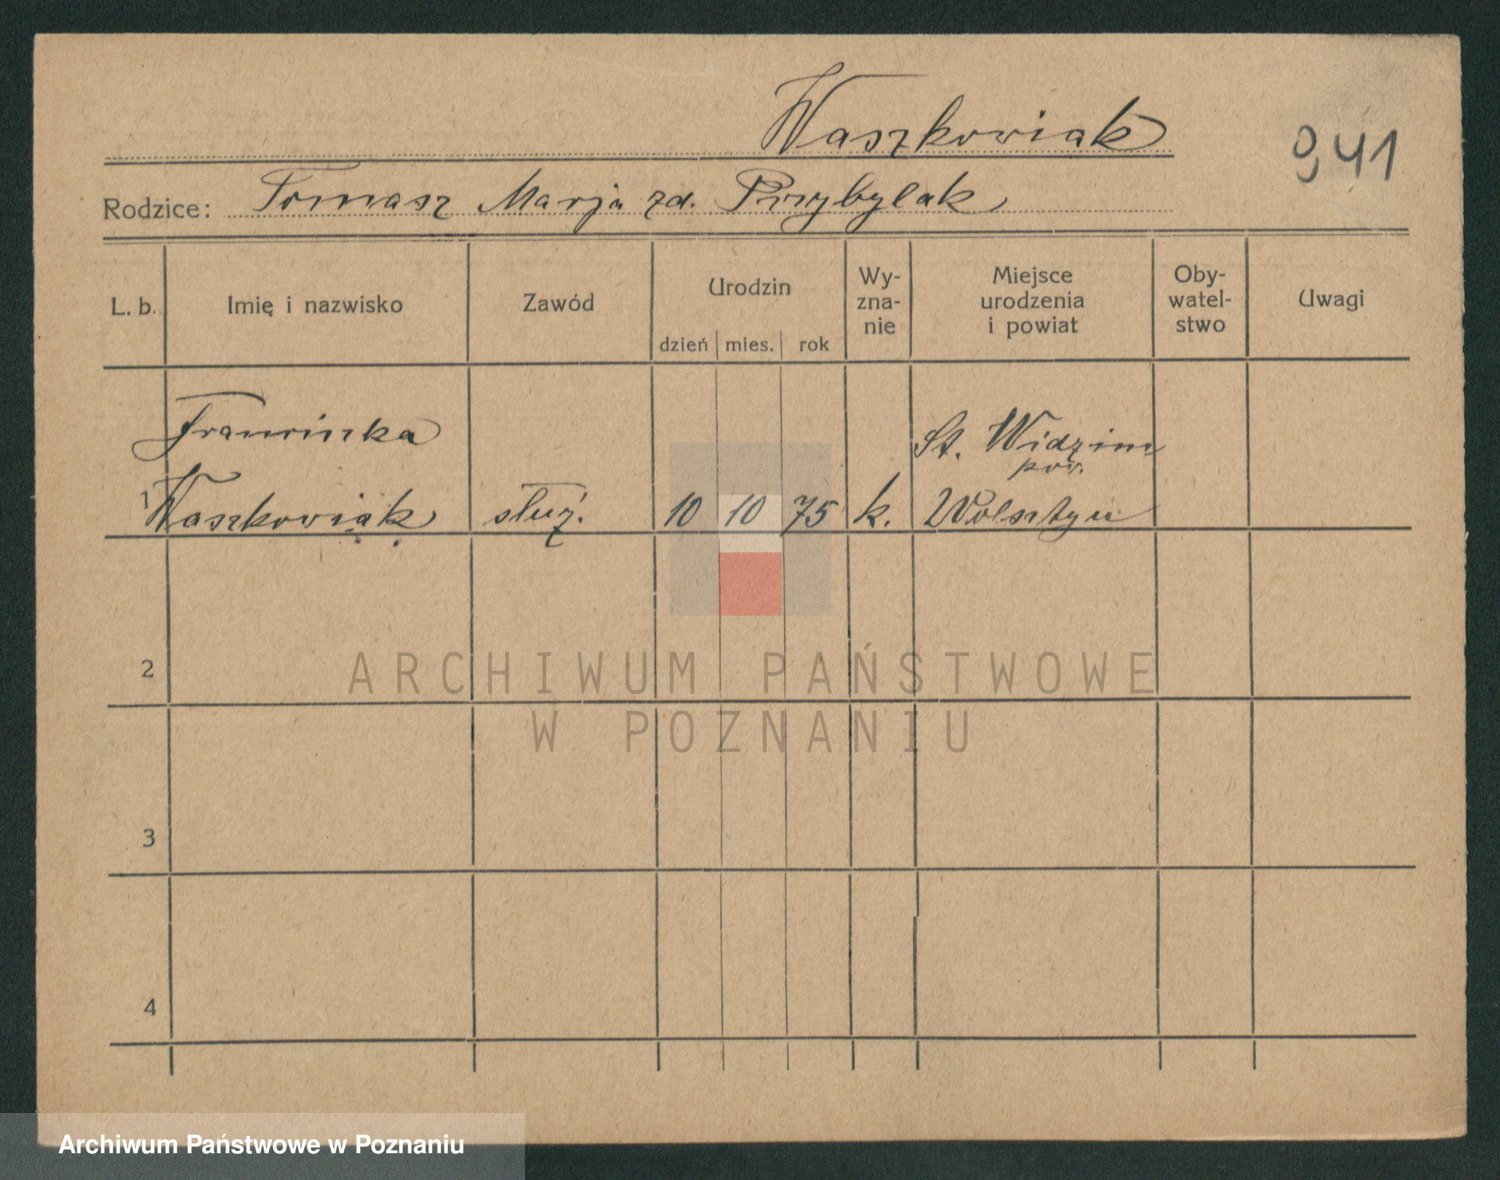 Waszkowiak
941
Rodzice: Tomasz Marja zd. Przybylak
L. b.
Imię i nazwisko
Zawód
Urodzin
dzień mies. rok
Wy-
zna-
nie
Miejsce
urodzenia
i powiat
Oby-
watel-
stwo
Uwagi
Franciszka
St. Widzim
pow.
1 Waszkowiak służ. 10 10 75 k. Wolsztyn
2
ARCHIWUM PAŃSTWOWE
W POZNANIU
3
4
Archiwum Państwowe w Poznaniu